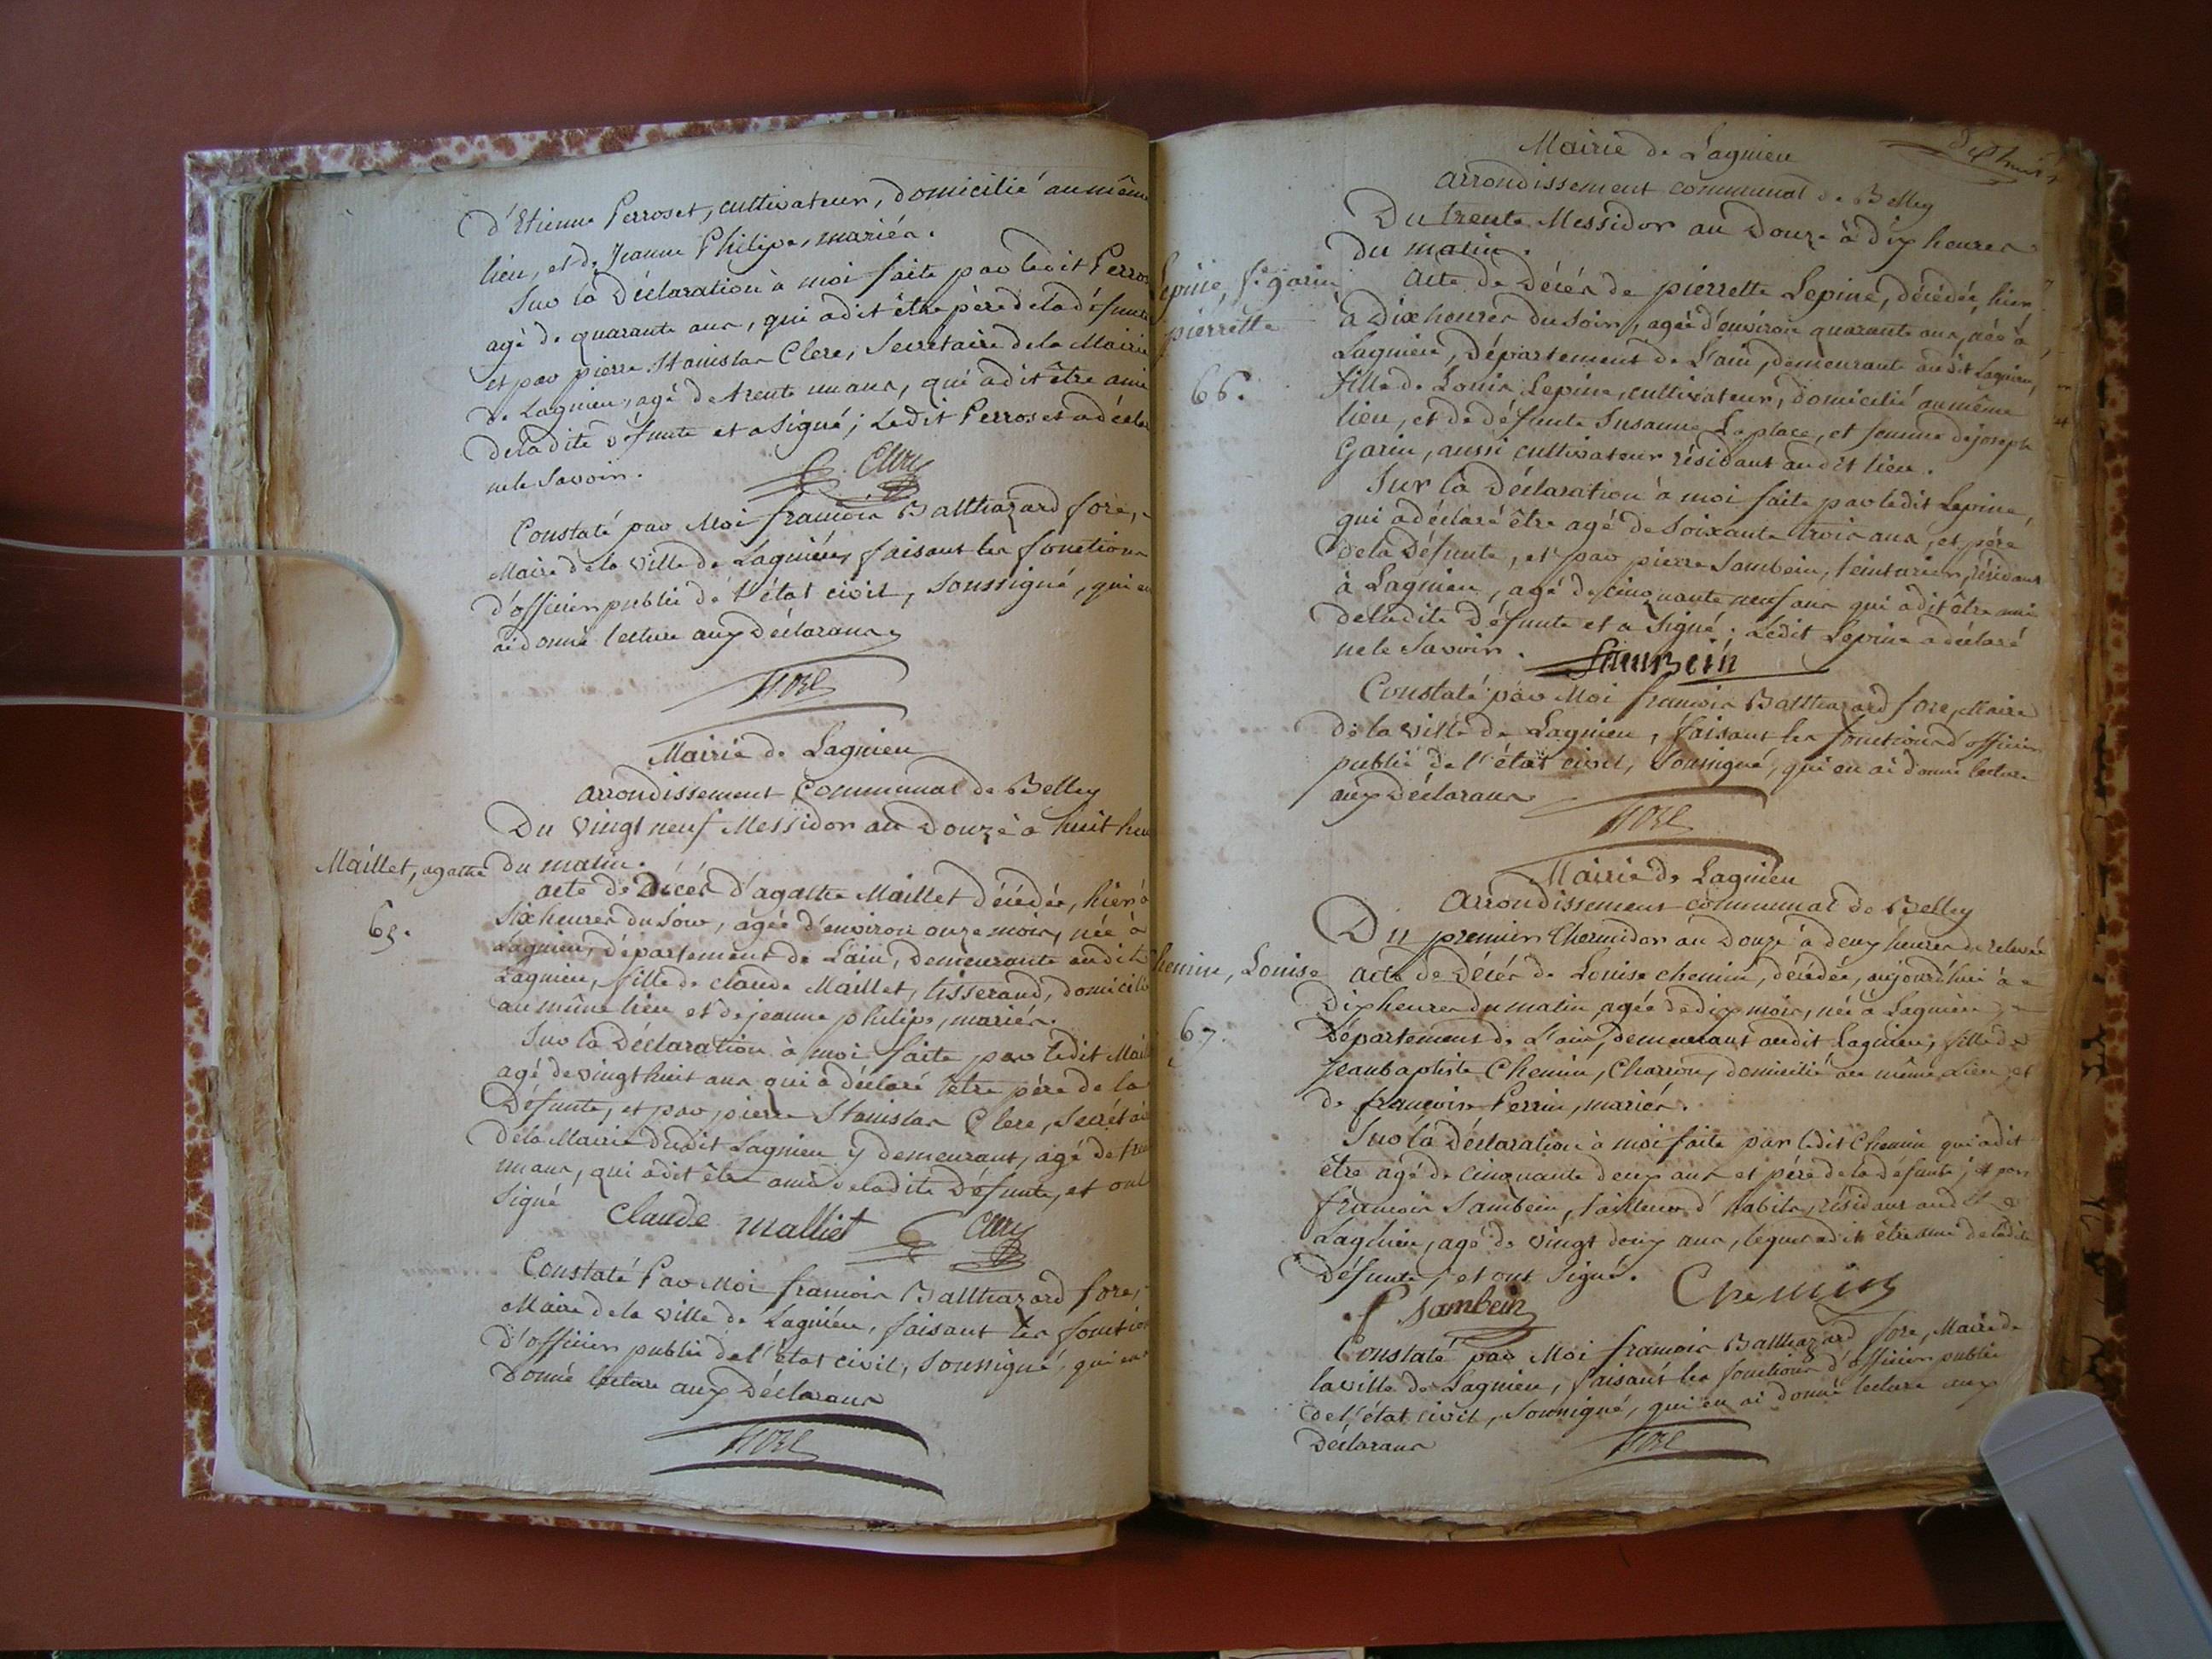 d'Etienne Perroset, cultivateur, domicilié au même
lieu, et de Jeanne Philipe, mariés.
Sur la Déclaration à moi faite par ledit Perros
agé de quarante ans, qui a dit être père de la défunte
et par pierre Stanislas Clerc, Secretaire de la Mairie
de Lagnieu, agé de trente un ans, qui a dit être ami
de ladite défunte et a Signé; Ledit Perroset a déclar
ne le Savoir.
Constaté par Moi françois Balthazard fore,
Maire de la ville de Lagnieu, faisant les fonctions
d'officier public de l'état civil, Soussigné, qui en
ai donné lecture aux Déclarans
fore
Mairie de Lagnieu
arrondissement Communal de Belley
Du vingt neuf Messidor an Douze à huit heu
du matin.
Maillet, agathe
65.
acte de Décés d'agathe Maillet décédée, hier à
Six heures du Soir, agée d'environ onze mois, née à
Lagnieu, département de L'ain, demeurante audit
Lagnieu, fille de claude Maillet, tisserand, domicilié
au même lieu et de jeanne philipe, mariés.
Sur la Déclaration à moi faite par ledit Mail
agé de vingt huit ans qui a déclaré être père de la
Défunte, et par pierre Stanislas Clerc, Secrétai
de la Mairie dudit Lagnieu y demeurant, agé de tre
un ans, qui a dit être ami de ladite Défunte, et ont
Signé
Claude malliet
Constaté Par Moi françois Balthazard fore,
Maire de la ville de Lagnieu, faisant les fonction
d'officier public de l'état civil, Soussigné, qui en
Donné lecture aux Déclarans
fore
Mairie de Lagnieu
arrondissement communal de Belley
Du trente Messidor an Douze à dix heures
du matin.
Lepine, fe garin
pierrette
66.
Acte de Décés de pierrette Lepine, décédée, hier,
à Dix heures du Soir, agée d'environ quarante ans, née à
Lagnieu, Département de L'ain, demeurante audit Lagnieu,
fille de Louis Lepine, cultivateur, domicilié au même
lieu, et de défunte Susanne Laplace, et femme de joseph
Garin, aussi cultivateur résidant audit lieu.
Sur la Déclaration à moi faite par ledit Lepine,
qui a déclaré être agé de Soixante trois ans, et père
de la Défunte, et par pierre Sambein, teinturier, résidant
à Lagnieu, agé de cinquante neuf ans qui a dit être ami
de ladite Défunte et a Signé; Ledit Lepine a déclaré
ne le Savoir.
Sambein
Constaté par Moi françois Balthazard fore, Maire
de la ville de Lagnieu, faisant les fonctions d'officier
public de l'état civil, Soussigné, qui en ai donné lecture
aux Déclarans
fore
Mairie de Lagnieu
Arrondissement communal de Belley
Du premier thermidor an Douze à deux heures de relevée
hemin, Louise
67.
acte de Décés de Louise chemin, décédée, aujourd'hui à
Dix heures du matin, agée de dix mois, née à Lagnieu
Département de L'ain, demeurant audit Lagnieu, fille de
Jean baptiste Chemin, Charron, domicilié au même Lieu, et
de françoise Perrin, mariés.
Sur la Déclaration à moi faite par ledit Chemin qui a dit
être agé de cinquante deux ans et père de la défunte; et par
françois Sambein, tailleur d'habits, résidant audit
Lagnieu, agé de vingt deux ans, lequel a dit être ami de ladite
Défunte, et ont Signé.
Chemin
f Sambein
Constaté par Moi françois Balthazard fore, Maire de
la ville de Lagnieu, faisant les fonctions d'officier public
de l'état civil, Soussigné, qui en ai donné lecture aux
Déclarans
fore